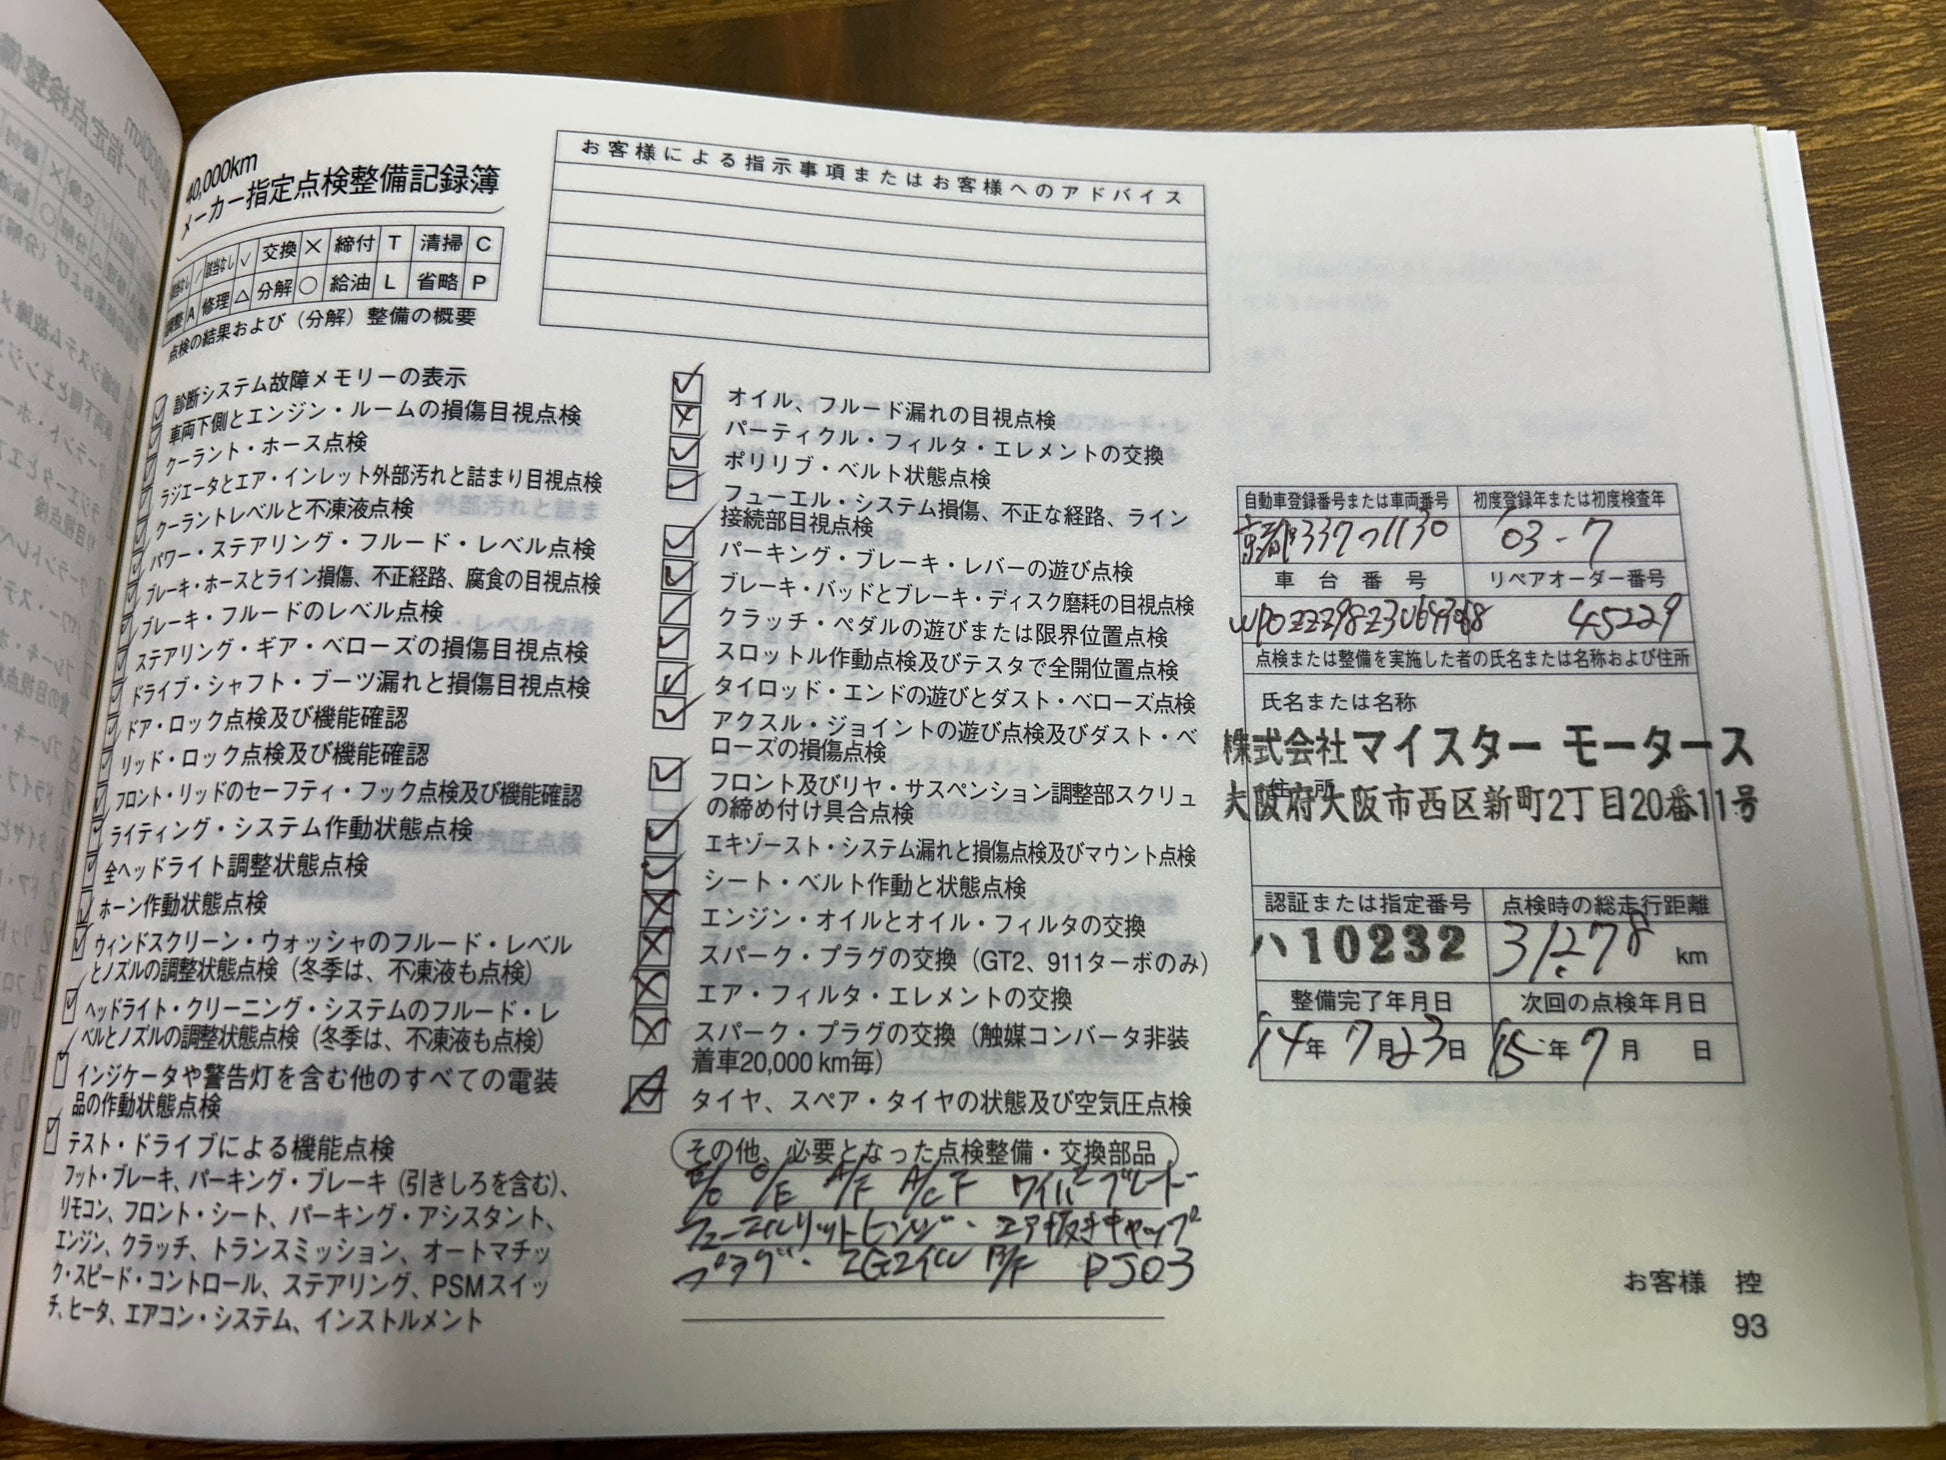 40,000km
メーカー指定点検整備記録簿
該当なし ／ 該当なし ✓ 交換 × 締付 T 清掃 C
調整 A 修理 △ 分解 ○ 給油 L 省略 P
点検の結果および（分解）整備の概要
お客様による指示事項またはお客様へのアドバイス
診断システム故障メモリーの表示
車両下側とエンジン・ルームの損傷目視点検
クーラント・ホース点検
ラジエータとエア・インレット外部汚れと詰まり目視点検
クーラントレベルと不凍液点検
パワー・ステアリング・フルード・レベル点検
ブレーキ・ホースとライン損傷、不正経路、腐食の目視点検
ブレーキ・フルードのレベル点検
ステアリング・ギア・ベローズの損傷目視点検
ドライブ・シャフト・ブーツ漏れと損傷目視点検
ドア・ロック点検及び機能確認
リッド・ロック点検及び機能確認
フロント・リッドのセーフティ・フック点検及び機能確認
ライティング・システム作動状態点検
全ヘッドライト調整状態点検
ホーン作動状態点検
ウィンドスクリーン・ウォッシャのフルード・レベル
とノズルの調整状態点検（冬季は、不凍液も点検）
ヘッドライト・クリーニング・システムのフルード・レ
ベルとノズルの調整状態点検（冬季は、不凍液も点検）
インジケータや警告灯を含む他のすべての電装
品の作動状態点検
テスト・ドライブによる機能点検
フット・ブレーキ、パーキング・ブレーキ（引きしろを含む）、
リモコン、フロント・シート、パーキング・アシスタント、
エンジン、クラッチ、トランスミッション、オートマチッ
ク・スピード・コントロール、ステアリング、PSMスイッ
チ、ヒータ、エアコン・システム、インストルメント
オイル、フルード漏れの目視点検
パーティクル・フィルタ・エレメントの交換
ポリリブ・ベルト状態点検
フューエル・システム損傷、不正な経路、ライン
接続部目視点検
パーキング・ブレーキ・レバーの遊び点検
ブレーキ・パッドとブレーキ・ディスク磨耗の目視点検
クラッチ・ペダルの遊びまたは限界位置点検
スロットル作動点検及びテスタで全開位置点検
タイロッド・エンドの遊びとダスト・ベローズ点検
アクスル・ジョイントの遊び点検及びダスト・ベ
ローズの損傷点検
フロント及びリヤ・サスペンション調整部スクリュ
の締め付け具合点検
エキゾースト・システム漏れと損傷点検及びマウント点検
シート・ベルト作動と状態点検
エンジン・オイルとオイル・フィルタの交換
スパーク・プラグの交換（GT2、911ターボのみ）
エア・フィルタ・エレメントの交換
スパーク・プラグの交換（触媒コンバータ非装
着車20,000 km毎）
タイヤ、スペア・タイヤの状態及び空気圧点検
その他、必要となった点検整備・交換部品
E/O O/E A/F A/C F ワイパーブレード
フューエルリットヒンジ・エア抜きキャップ
プラグ・ B/F
自動車登録番号または車両番号 初度登録年または初度検査年
京都 337 1130 '03-7
車台番号 リペアオーダー番号
45229
点検または整備を実施した者の氏名または名称および住所
氏名または名称
株式会社マイスター モータース
住所
大阪府大阪市西区新町2丁目20番11号
認証または指定番号 点検時の総走行距離
ハ10232 31278 km
整備完了年月日 次回の点検年月日
14年 7月23日 15年 7月 日
お客様 控
93